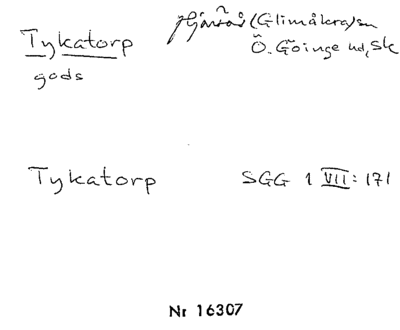 Tykatorp (Glimåkra) sn
gods Ö. Göinge hd, Sk
Tykatorp SGG 1 VII: 171
Nr 16307